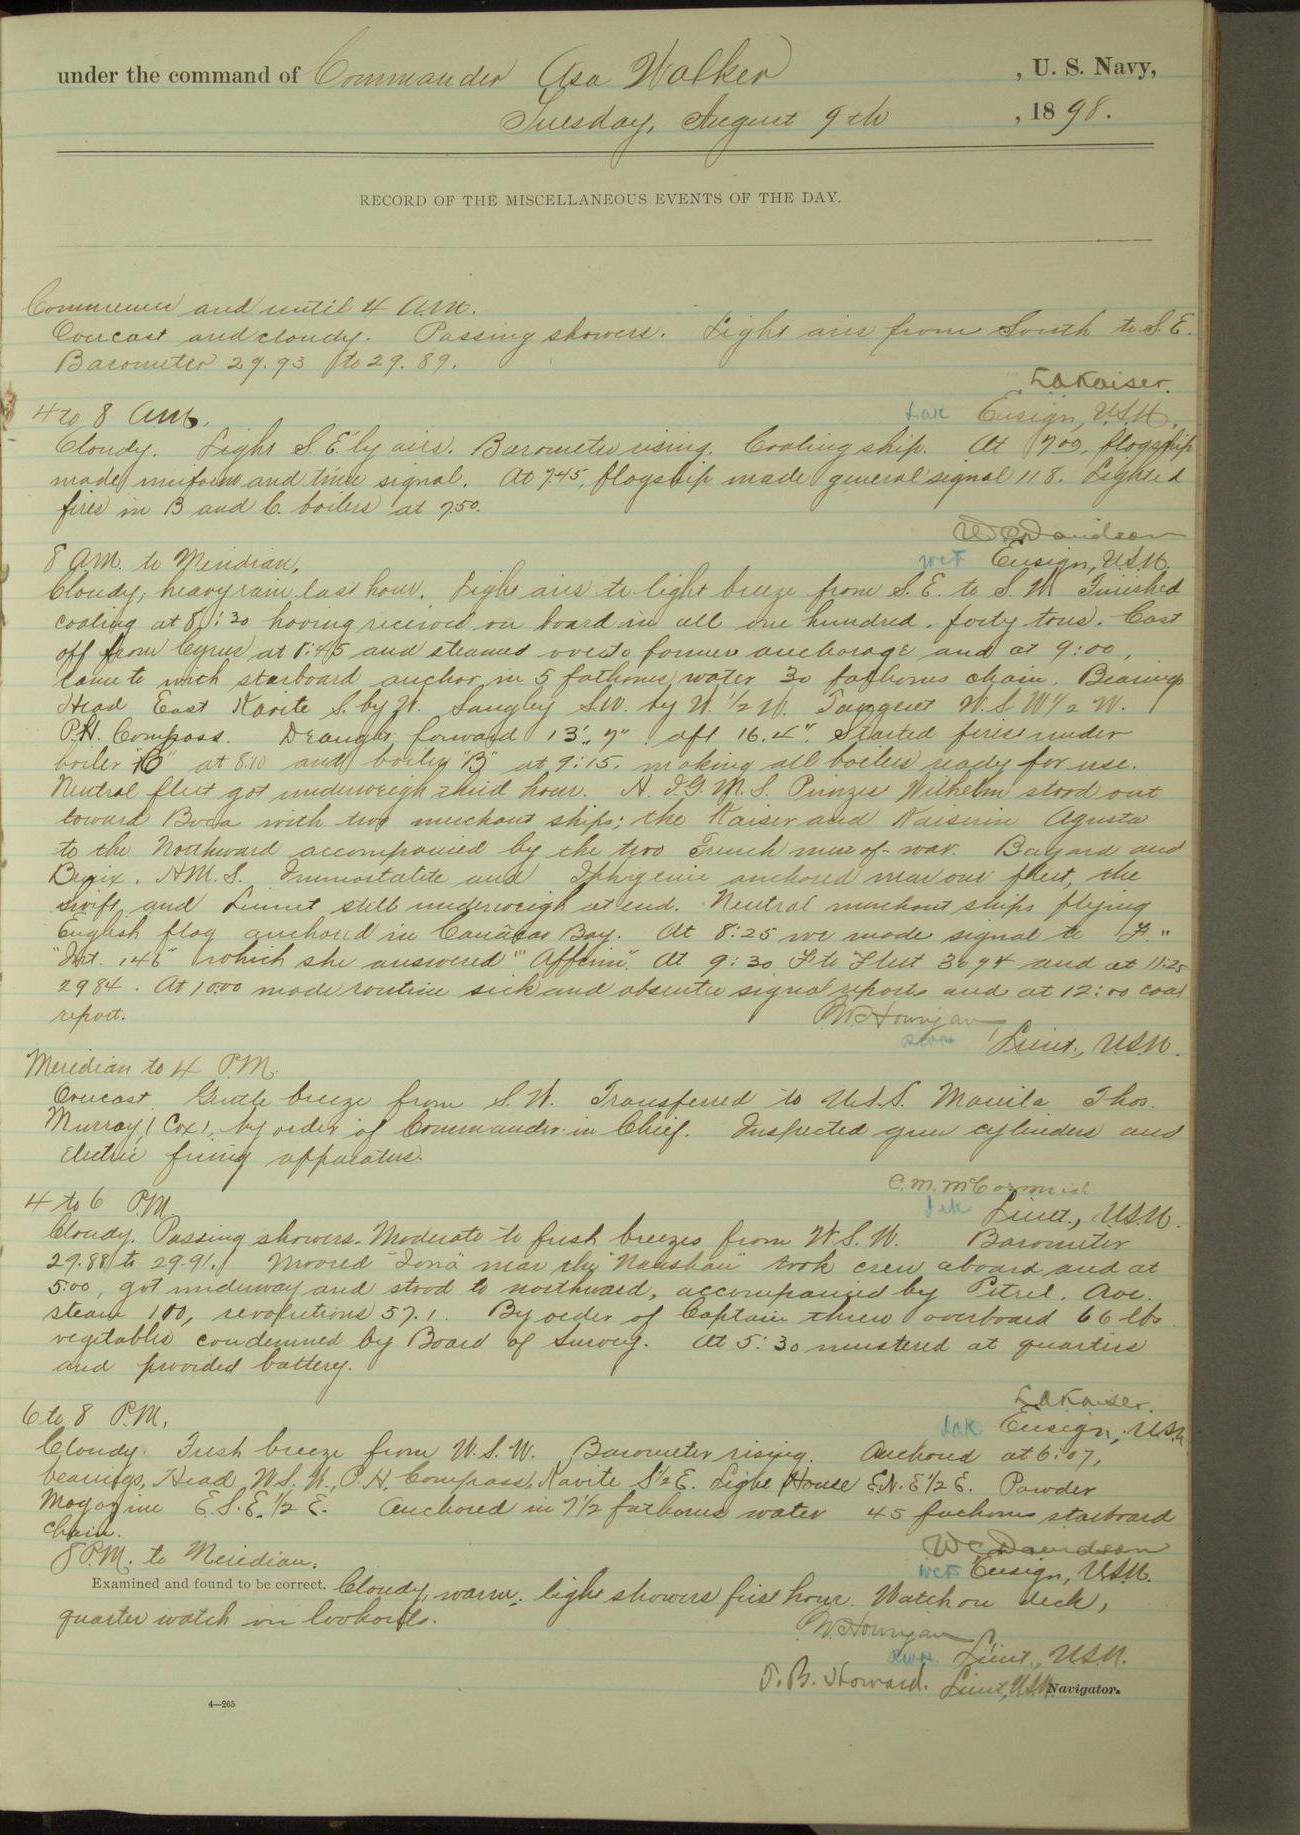 under the command of Commander Asa Walker, U. S. Navy,
Tuesday, August 9th, 1898.
RECORD OF THE MISCELLANEOUS EVENTS OF THE DAY.
Commences and until 4 A.M.
Overcast and cloudy. Passing showers. Light airs from South to S.E.
Barometer 29.93 to 29.89.
L A Kaiser.
LAK Ensign, U.S.N.
4 to 8 A.M.
Cloudy. Light S.E'ly airs. Barometer rising. Coaling ship. At 7:00, flagship
made uniform and time signal. At 7.45, flagship made general signal 118. Lighted
fires in B and C. boilers at 7.50.
W C Davidson
WCF Ensign, U.S.N.
8 A.M. to Meridian.
Cloudy; heavy rain last hour. Light airs to light breeze from S.E. to S.W. Finished
coaling at 8:30 having received on board in all one hundred forty tons. Cast
off from Cyrus at 8:45 and steamed over to former anchorage and at 9:00,
came to with starboard anchor in 5 fathoms water 30 fathoms chain. Bearings
Head East Kavite S. by W. Sangley S.W. by W. 1/2 W. W.S.W 1/2 W.
P.H. Compass. Draught forward 13'. 7" aft 16. 4". Started fires under
boiler at 8.10 and boiler "B" at 9:15. making all boilers ready for use.
Neutral fleet got underweigh third hour. H.I.G.M.S. Prinzes Wilhelm stood out
toward Boca with two merchant ships; the Kaiser and Kaiserin Agusta
to the Northward accompanied by the two French men-of-war. Bayard and
H.M.S. Immortalite and Iphigenie anchored near our fleet, the
Swift and Linnet still underweigh at end. Neutral merchant ships flying
English flag anchored in Cañacao Bay. At 8:25 we made signal to F.
"Int. 146" which she answered "Affirm". At 9:30 F to Fleet 3694 and at 11:25
2984. At 10:00 made routine sick and absentee signal reports and at 12:00 coal
report.
W Hourigan
Lieut., U.S.N.
Meridian to 4 P.M.
Overcast. Gentle breeze from S.W. Transferred to U.S.S. Manila Thos.
Murray, (Cox), by order of Commander-in Chief. Inspected gun cylinders and
Electric firing apparatus.
C. M. McCormick
Lieut., U.S.N.
4 to 6 P.M.
Cloudy. Passing showers. Moderate to fresh breezes from W.S.W. Barometer
29.88 to 29.91. Moored near the "Nanshan" took crew aboard and at
5:00, got underway and stood to northward, accompanied by Petrel. Ave.
steam 100, revolutions 57.1. By order of Captain threw overboard 66 lbs
vegetables condemned by Board of Survey. At 5:30 mustered at quarters
and provided battery.
L A Kaiser.
LAK Ensign, U.S.N.
6 to 8 P.M.
Cloudy. Fresh breeze from W.S.W. Barometer rising. Anchored at 6:07,
bearings, Head W.S.W., P.H. Compass, Kavite S 1/2 E. Light House E.N.E 1/2 E. Powder
Magazine E.S.E. 1/2 E. Anchored in 7 1/2 fathoms water 45 fathoms starboard
chain.
W C Davidson
WCF Ensign, U.S.N.
8 P.M. to Meridian.
Examined and found to be correct. Cloudy, warm, light showers first hour. Watch on deck,
quarter watch on lookouts.
W Hourigan
Lieut., U.S.N.
T. B. Howard. Lieut, U.S.N. Navigator.
4—265